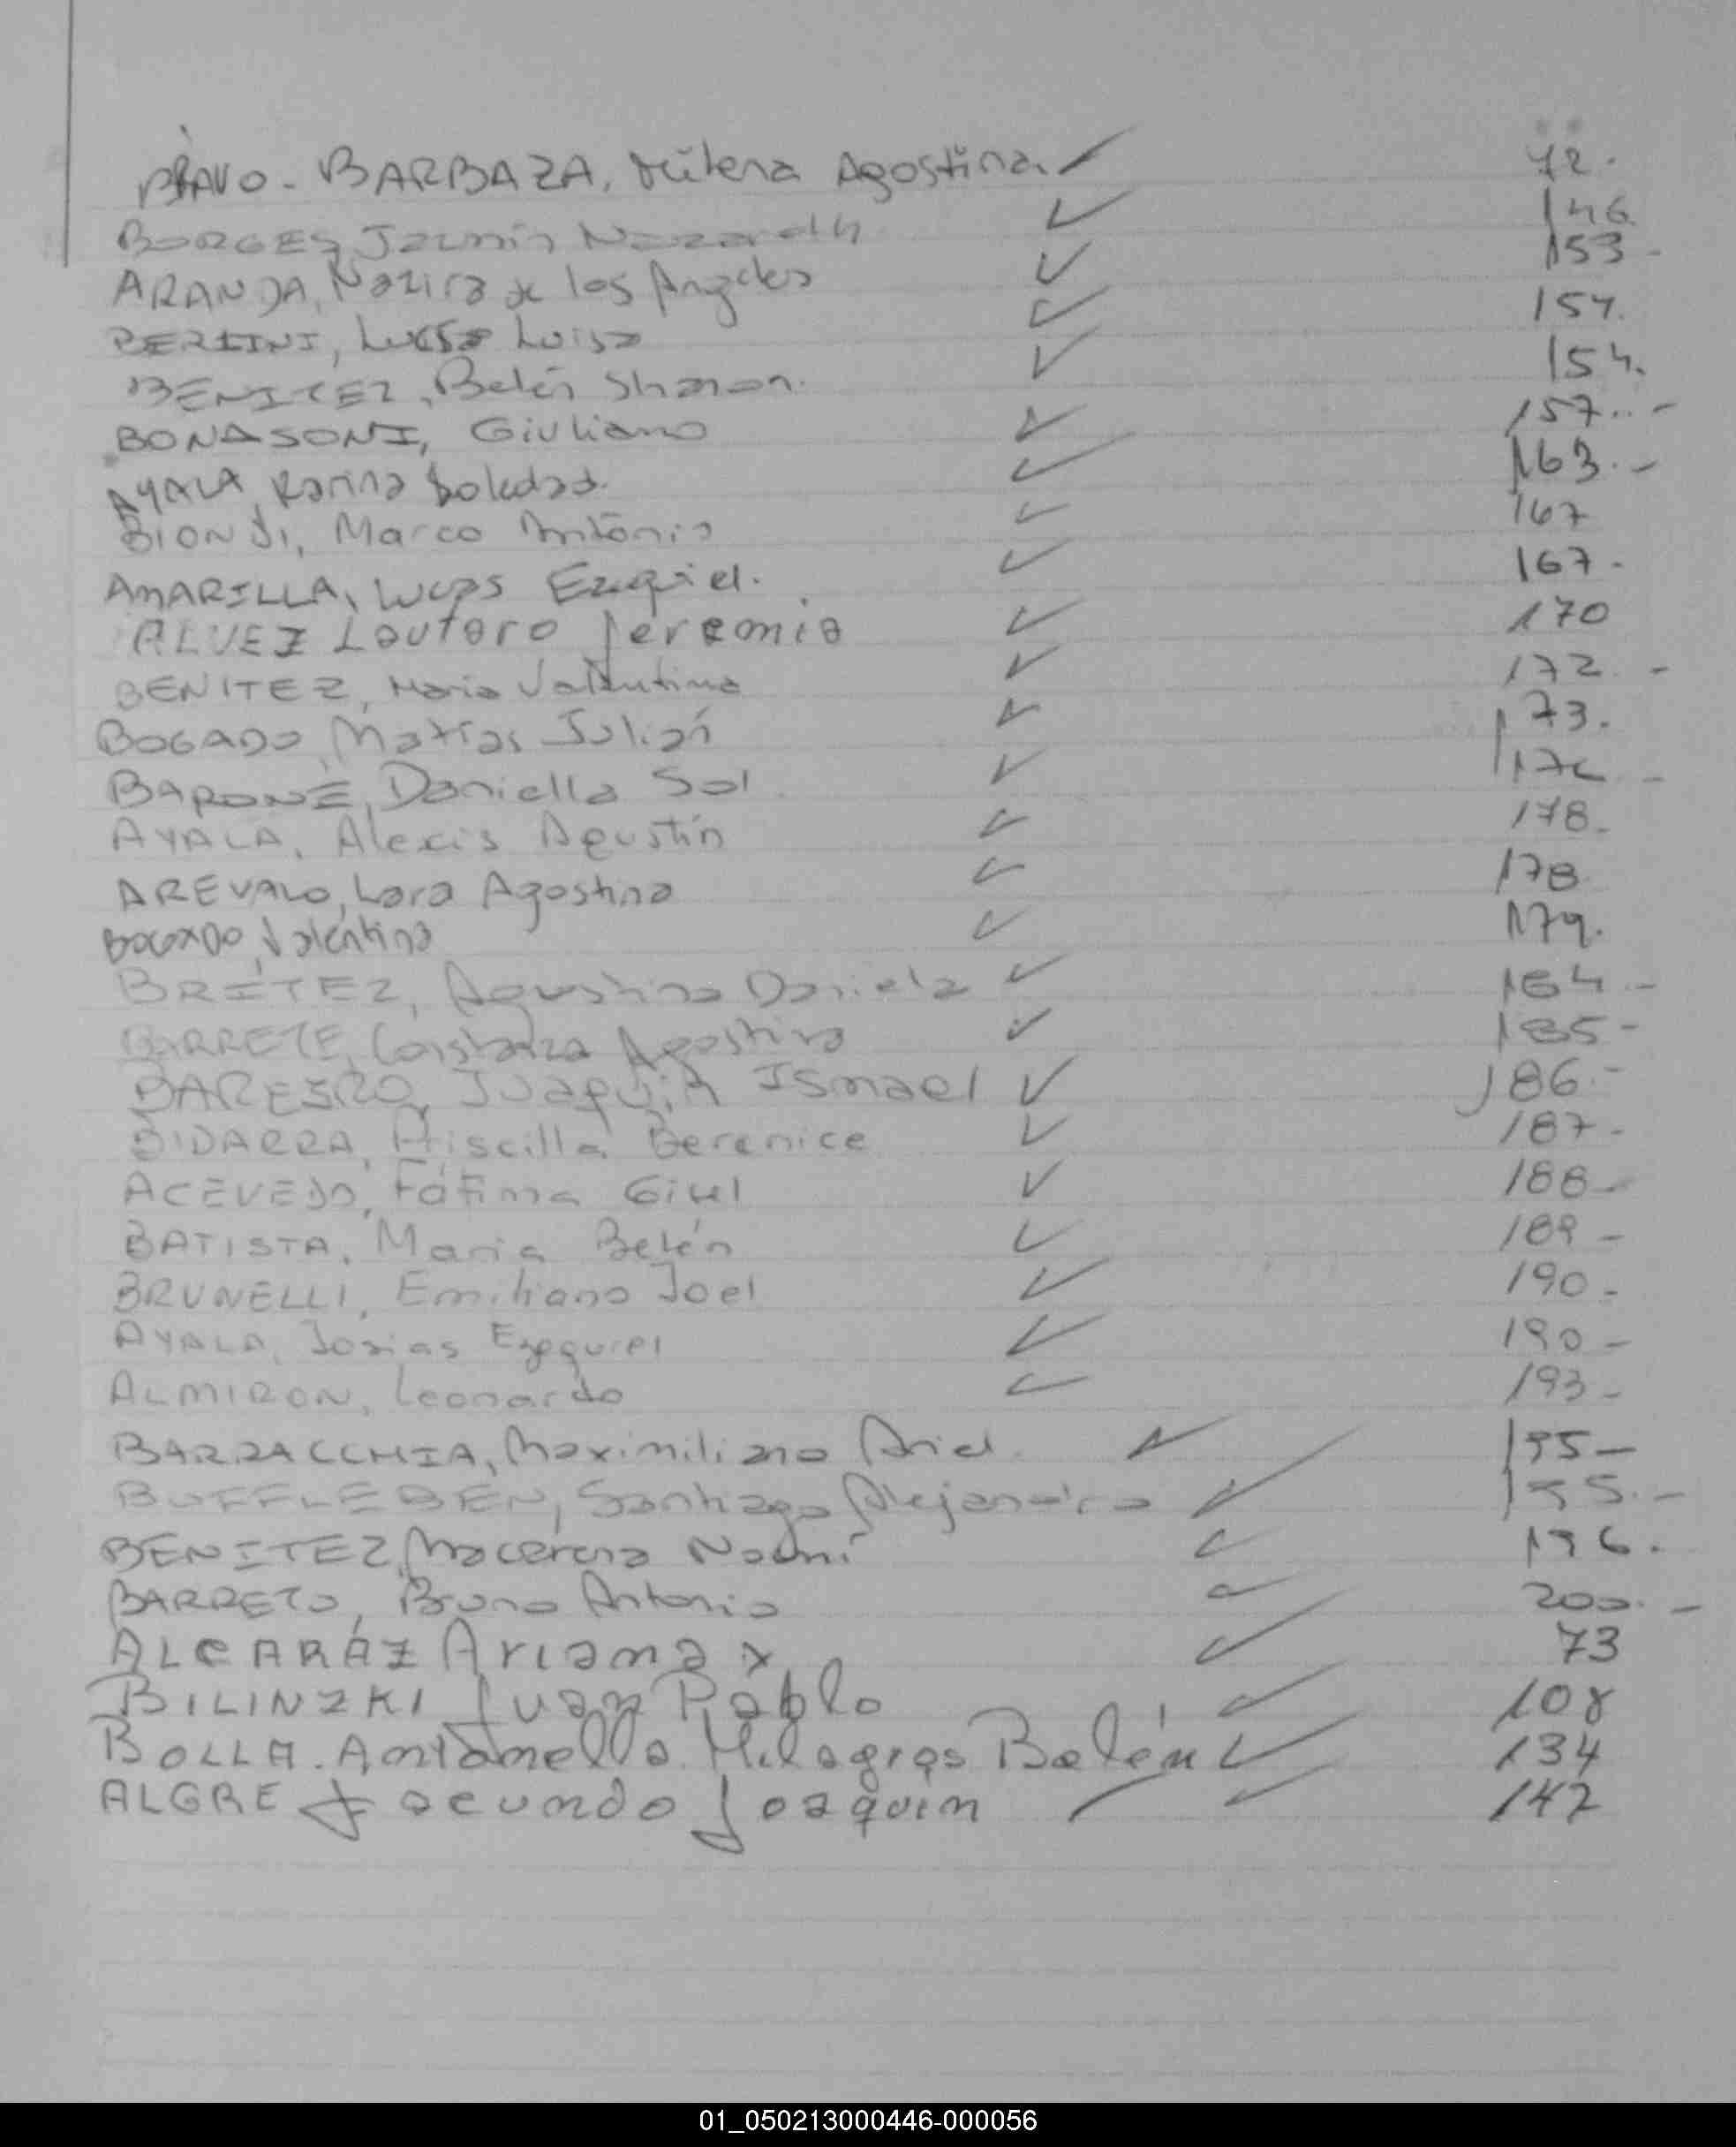 BRAVO - BARBAZA, Milena Agostina. ✓ 72.
BORGES, Jazmín Nazareth ✓ 146.
ARANDA, Nazira de los Angeles ✓ 153 -
Luisa ✓ 157.
BENITEZ, Belén Sharon. ✓ 154.
BONASONI, Giuliano ✓ 157.. -
AYALA, Karina Soledad. ✓ 163. -
BIONDI, Marco António ✓ 167
AMARILLA, Lucas Ezequiel. ✓ 167.
ALVEZ Lautaro Jeremia ✓ 170
BENITEZ, Maria Valentina ✓ 172. -
BOGADO, Matías Julián ✓ 173.
BARONE, Daniella Sol ✓ -
AYALA, Alexis Agustín ✓ 178.
AREVALO, Lara Agostina ✓ 178
BOGADO, Valentina ✓ 179.
BRÍTEZ, Agustina Daniela ✓ 184 -
Constanza Agostina ✓ 185 -
BAREIRO, Juaquin Ismael ✓ 186 -
BIDARRA, Priscilla Berenice ✓ 187 -
ACEVEDO, Fátima ✓ 188 -
BATISTA, Maria Belén ✓ 189 -
BRUNELLI, Emiliano Joel ✓ 190 -
AYALA, Josias Ezequiel ✓ 190 -
ALMIRON, Leonardo ✓ 193 -
BARRACCHIA, Maximiliano Ariel. ✓ 195 -
BUFFLEBEN, Santiago Alejandro ✓ 195. -
BENITEZ, Macerena Noemí ✓ 196.
BARRETO, Bruno Antonio ✓ 200. -
ALCARÁZ Ariana x ✓ 73
BILINZKI Juan Pablo ✓ 108
BOLLA. Antonella Milagros Belén ✓ 134
ALGRE Facundo Joaquin ✓ 142
01_050213000446-000056